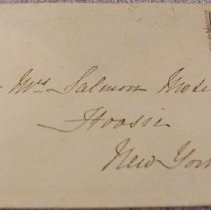 Mrs Salmon Mose
Hoosic
New York